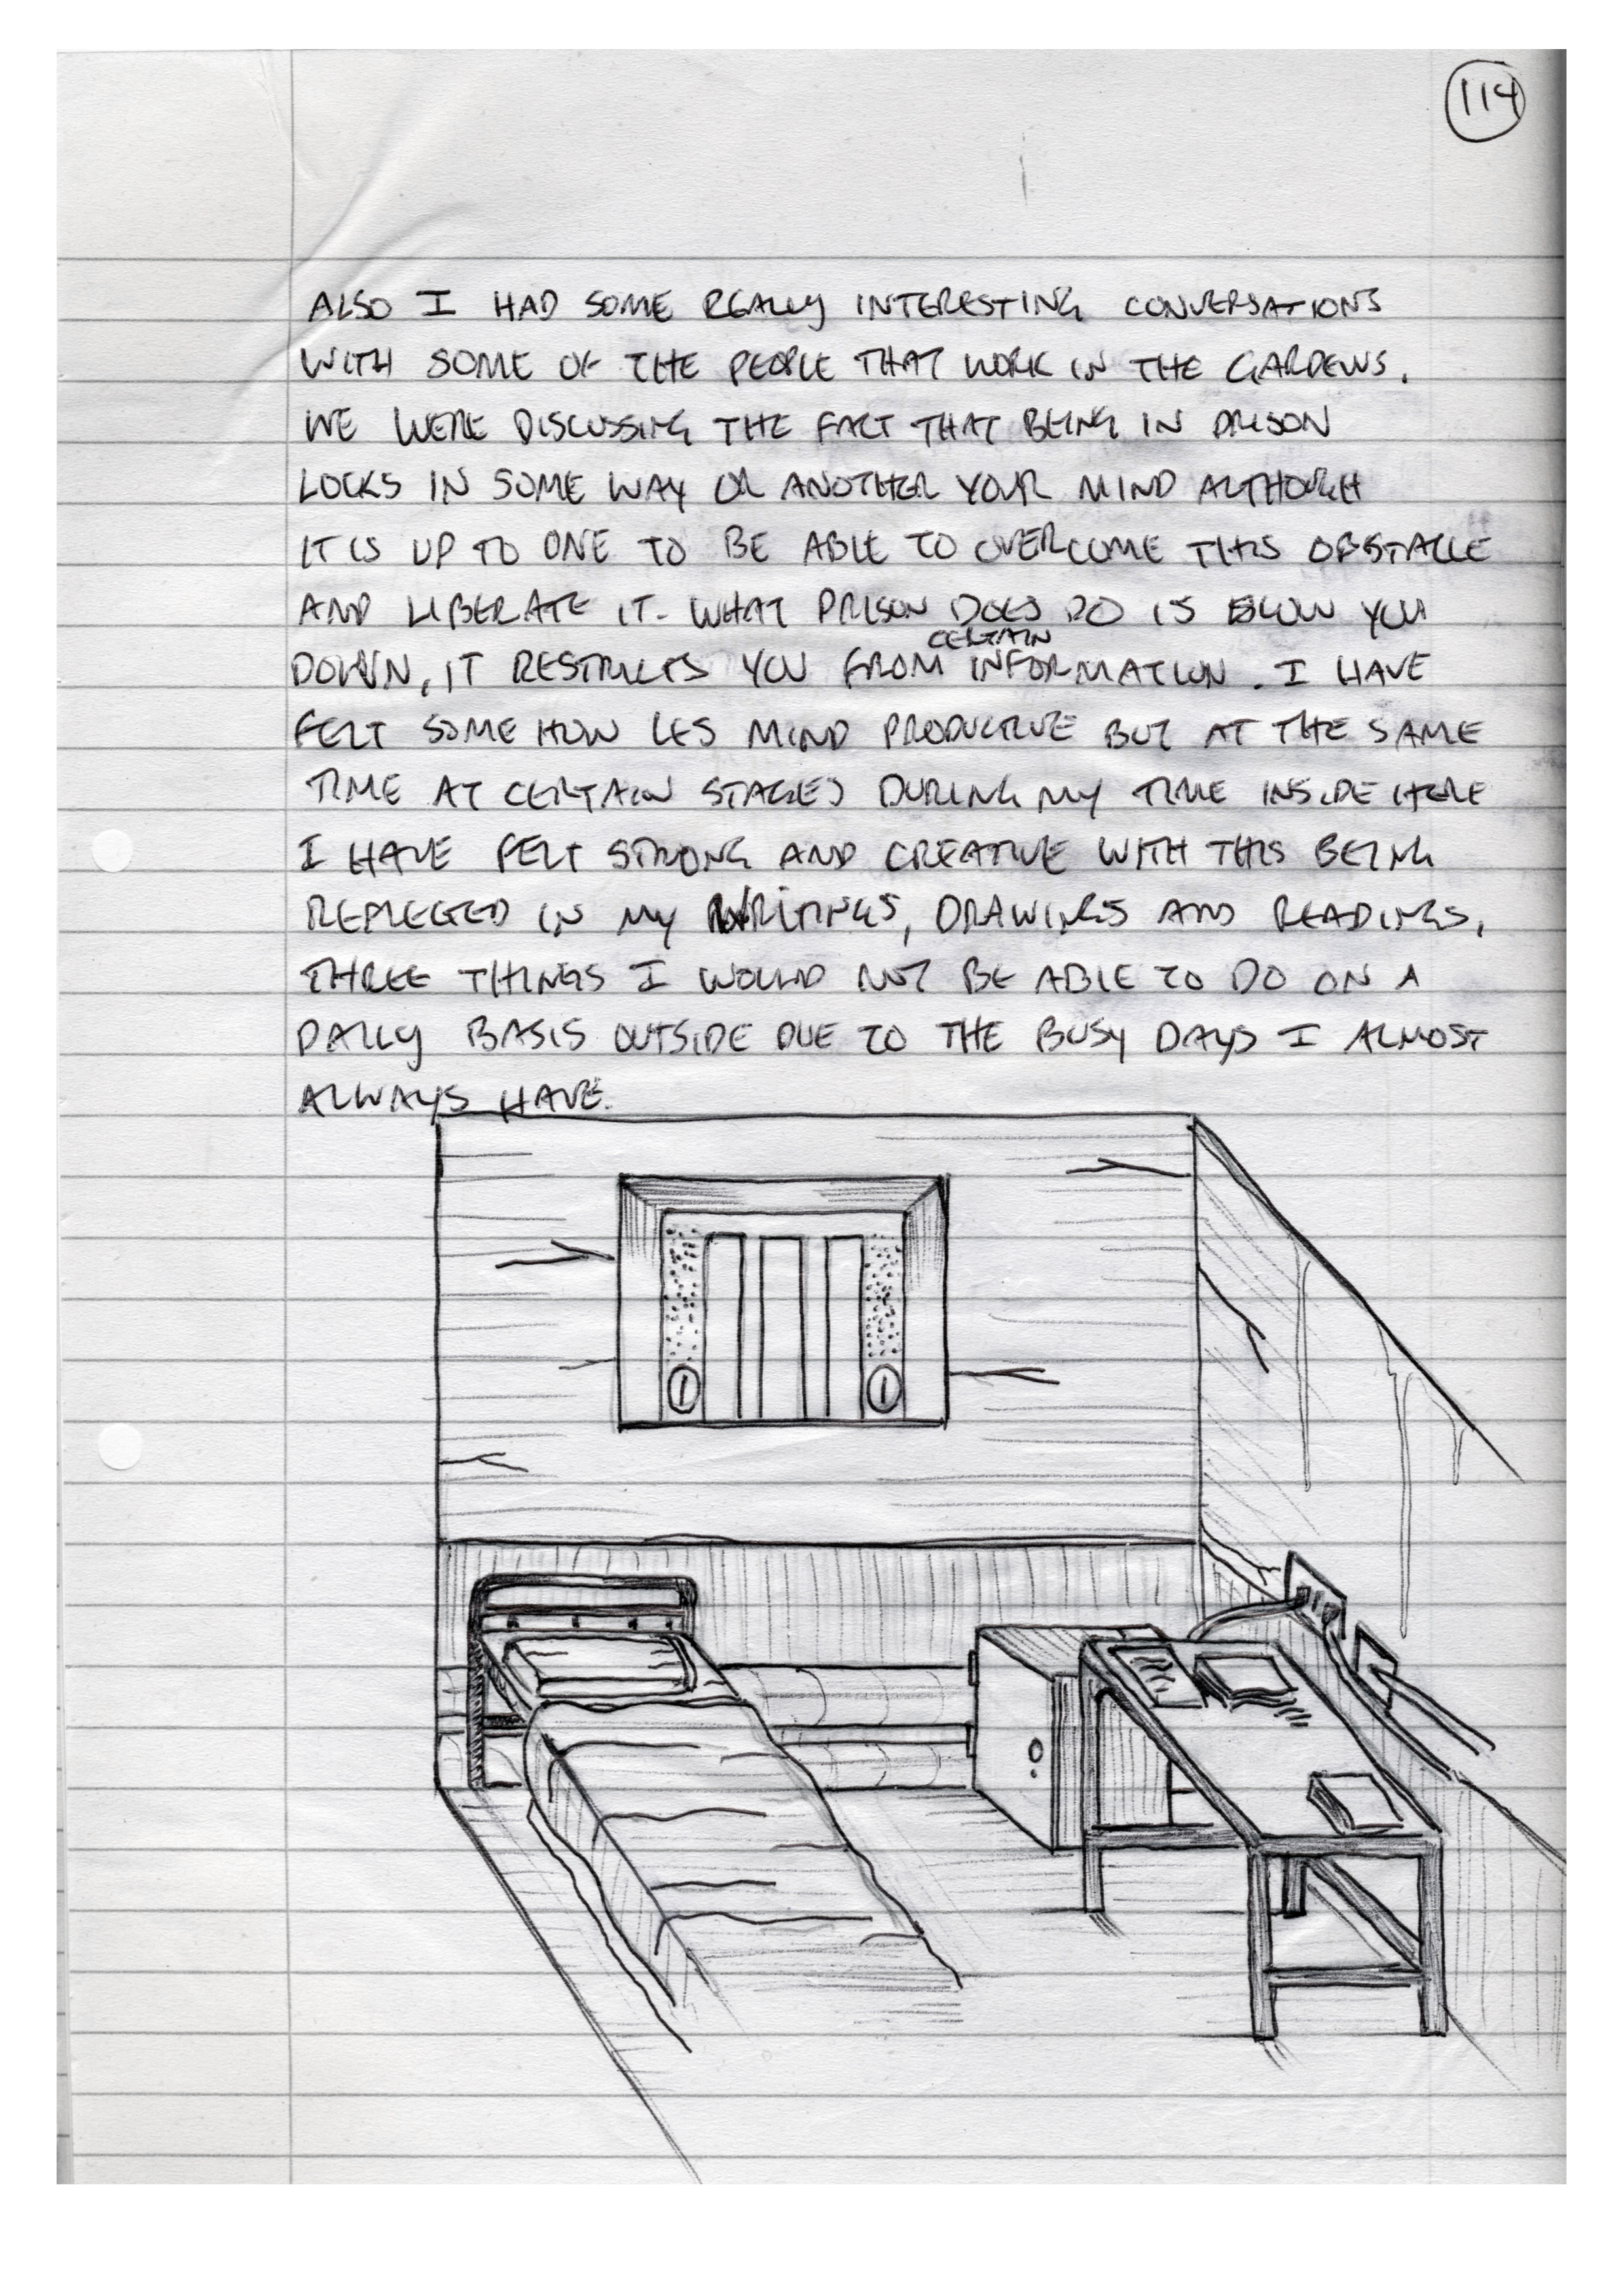 114
ALSO I HAD SOME REALLY INTERESTING CONVERSATIONS
WITH SOME OF THE PEOPLE THAT WORK IN THE GARDENS.
WE WERE DISCUSSING THE FACT THAT BEING IN PRISON
LOCKS IN SOME WAY OR ANOTHER YOUR MIND ALTHOUGH
IT IS UP TO ONE TO BE ABLE TO OVERCOME THIS OBSTACLE
AND LIBERATE IT. WHAT PRISON DOES DO IS SLOW YOU
CERTAIN
DOWN, IT RESTRICTS YOU FROM INFORMATION. I HAVE
FELT SOME HOW LES MIND PRODUCTIVE BUT AT THE SAME
TIME AT CERTAIN STAGES DURING MY TIME INSIDE HERE
I HAVE FELT STRONG AND CREATIVE WITH THIS BEING
REFLECTED IN MY WRITINGS, DRAWINGS AND READINGS,
THREE THINGS I WOULD NOT BE ABLE TO DO ON A
DAILY BASIS OUTSIDE DUE TO THE BUSY DAYS I ALMOST
ALWAYS HAVE.